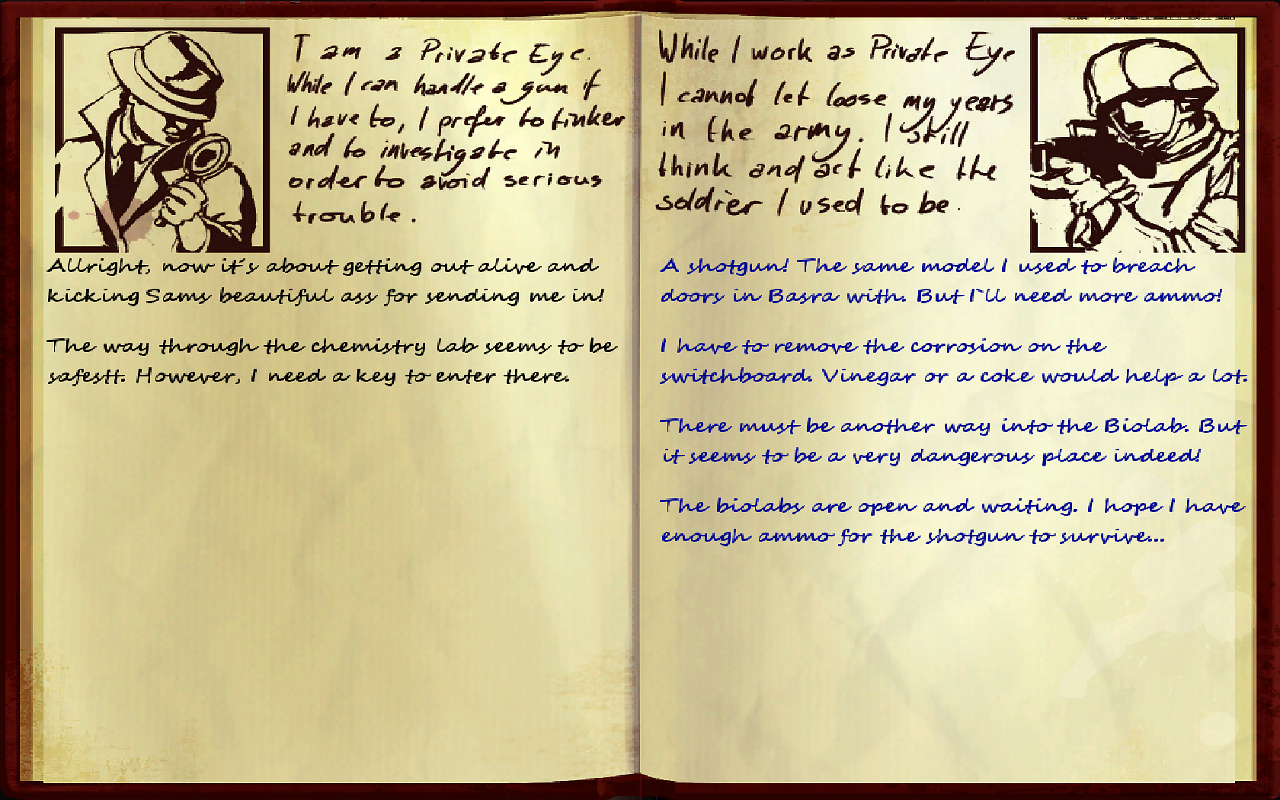 I am a Private Eye.
While I can handle a gun if
I have to, I prefer to tinker
and to investigate in
order to avoid serious
trouble.
Allright, now it's about getting out alive and
kicking Sams beautiful ass for sending me in!
The way through the chemistry lab seems to be
safestt. However, I need a key to enter there.
While I work as Private Eye
I cannot let loose my years
in the army. I still
think and act like the
soldier I used to be.
A shotgun! The same model I used to breach
doors in Basra with. But I`ll need more ammo!
I have to remove the corrosion on the
switchboard. Vinegar or a coke would help a lot.
There must be another way into the Biolab. But
it seems to be a very dangerous place indeed!
The biolabs are open and waiting. I hope I have
enough ammo for the shotgun to survive...